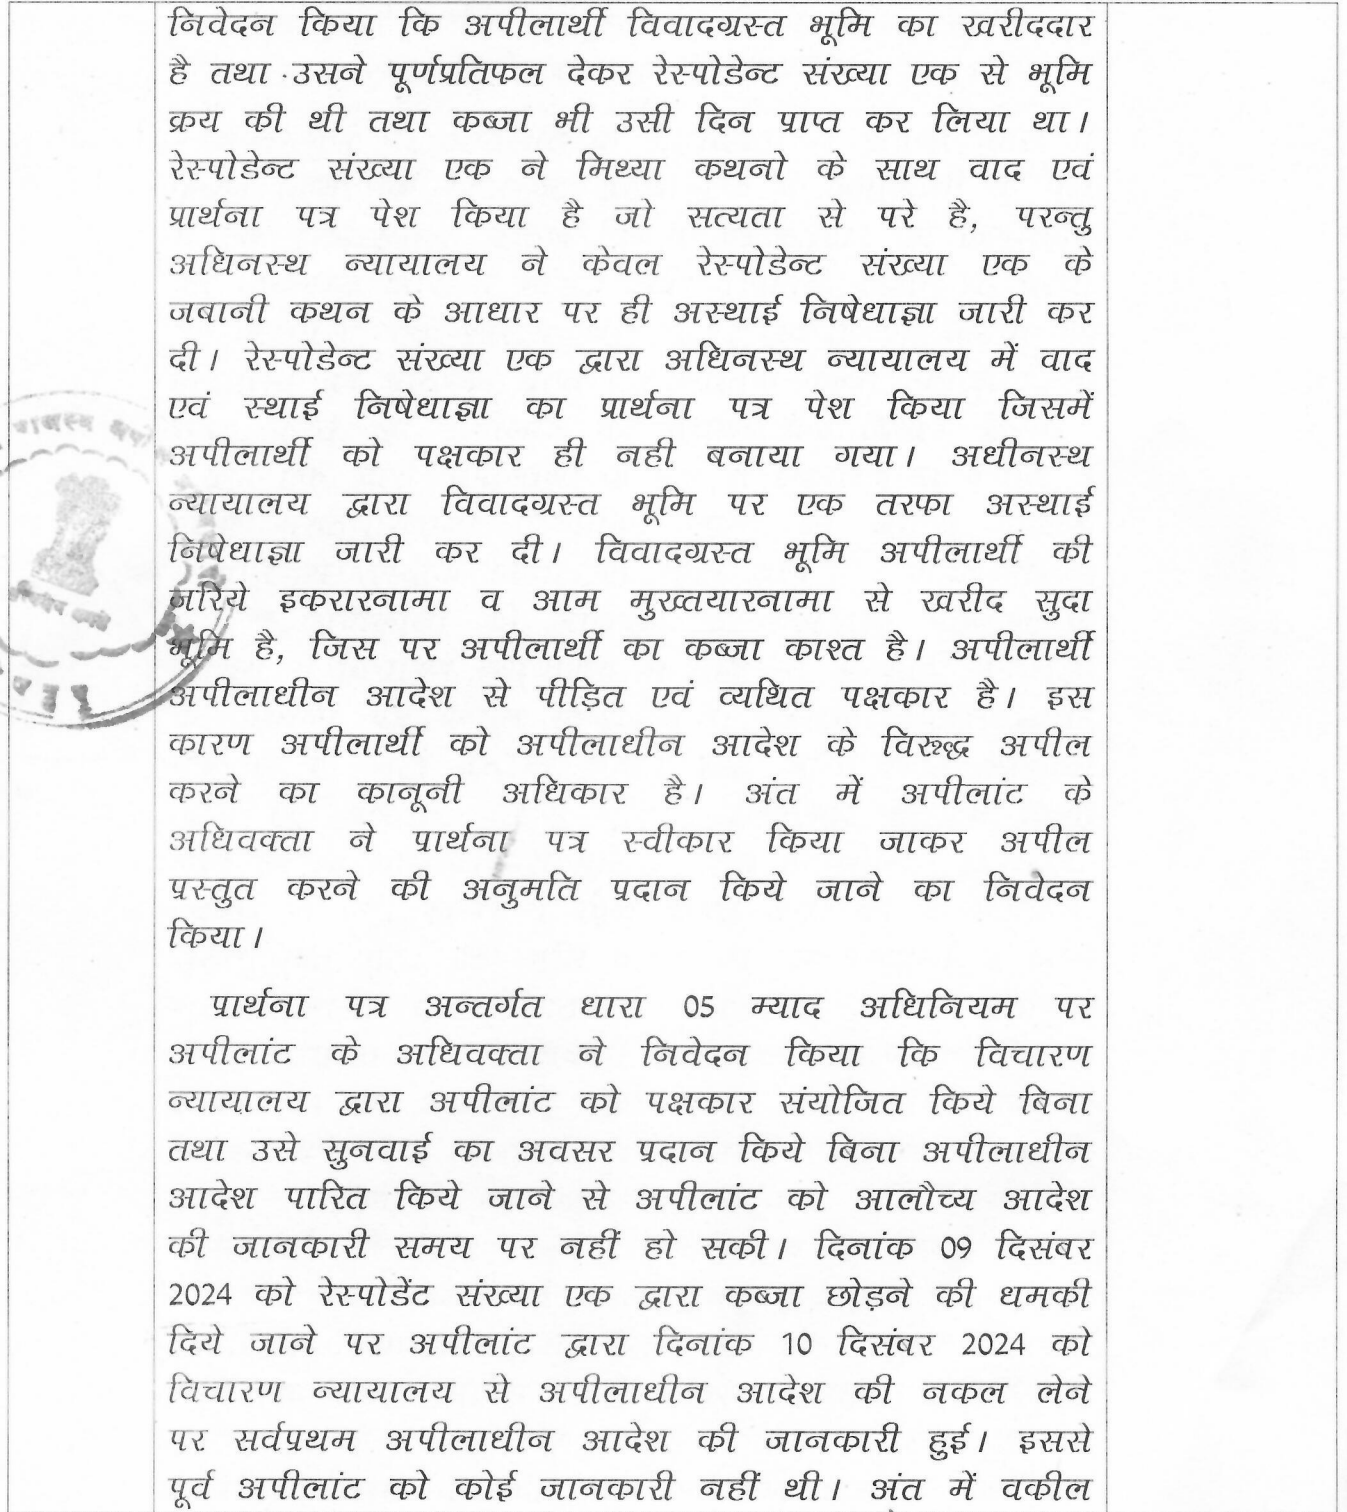 निवेदन किया कि अपीलार्थी विवादग्रस्त भूमि का खरीददार
है तथा उसने पूर्णप्रतिफल देकर रेस्पोडेन्ट संख्या एक से भूमि
क्रय की थी तथा कब्जा भी उसी दिन प्राप्त कर लिया था।
रेस्पोडेन्ट संख्या एक ने मिथ्या कथनो के साथ वाद एवं
प्रार्थना पत्र पेश किया है जो सत्यता से परे है, परन्तु
अधिनस्थ न्यायालय ने केवल रेस्पोडेन्ट संख्या एक के
जबानी कथन के आधार पर ही अस्थाई निषेधाज्ञा जारी कर
दी। रेस्पोडेन्ट संख्या एक द्वारा अधिनस्थ न्यायालय में वाद
एवं स्थाई निषेधाज्ञा का प्रार्थना पत्र पेश किया जिसमें
अपीलार्थी को पक्षकार ही नही बनाया गया। अधीनस्थ
न्यायालय द्वारा विवादग्रस्त भूमि पर एक तरफा अस्थाई
निषेधाज्ञा जारी कर दी। विवादग्रस्त भूमि अपीलार्थी की
जरिये इकरारनामा व आम मुख्तयारनामा से खरीद सुदा
भूमि है, जिस पर अपीलार्थी का कब्जा काश्त है। अपीलार्थी
अपीलाधीन आदेश से पीड़ित एवं व्यथित पक्षकार है। इस
कारण अपीलार्थी को अपीलाधीन आदेश के विरुद्ध अपील
करने का कानूनी अधिकार है। अंत में अपीलांट के
अधिवक्ता ने प्रार्थना पत्र स्वीकार किया जाकर अपील
प्रस्तुत करने की अनुमति प्रदान किये जाने का निवेदन
किया।
प्रार्थना पत्र अन्तर्गत धारा 05 म्याद अधिनियम पर
अपीलांट के अधिवक्ता ने निवेदन किया कि विचारण
न्यायालय द्वारा अपीलांट को पक्षकार संयोजित किये बिना
तथा उसे सुनवाई का अवसर प्रदान किये बिना अपीलाधीन
आदेश पारित किये जाने से अपीलांट को आलौच्य आदेश
की जानकारी समय पर नहीं हो सकी। दिनांक 09 दिसंबर
2024 को रेस्पोडेंट संख्या एक द्वारा कब्जा छोड़ने की धमकी
दिये जाने पर अपीलांट द्वारा दिनांक 10 दिसंबर 2024 को
विचारण न्यायालय से अपीलाधीन आदेश की नकल लेने
पर सर्वप्रथम अपीलाधीन आदेश की जानकारी हुई। इससे
पूर्व अपीलांट को कोई जानकारी नहीं थी। अंत में वकील